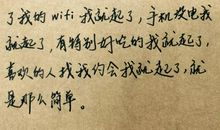 了我的wifi我就起了，手机没电我
就起了，有特别好吃的我就起了，
喜欢的人找我约会我就起了，就
是那么简单。